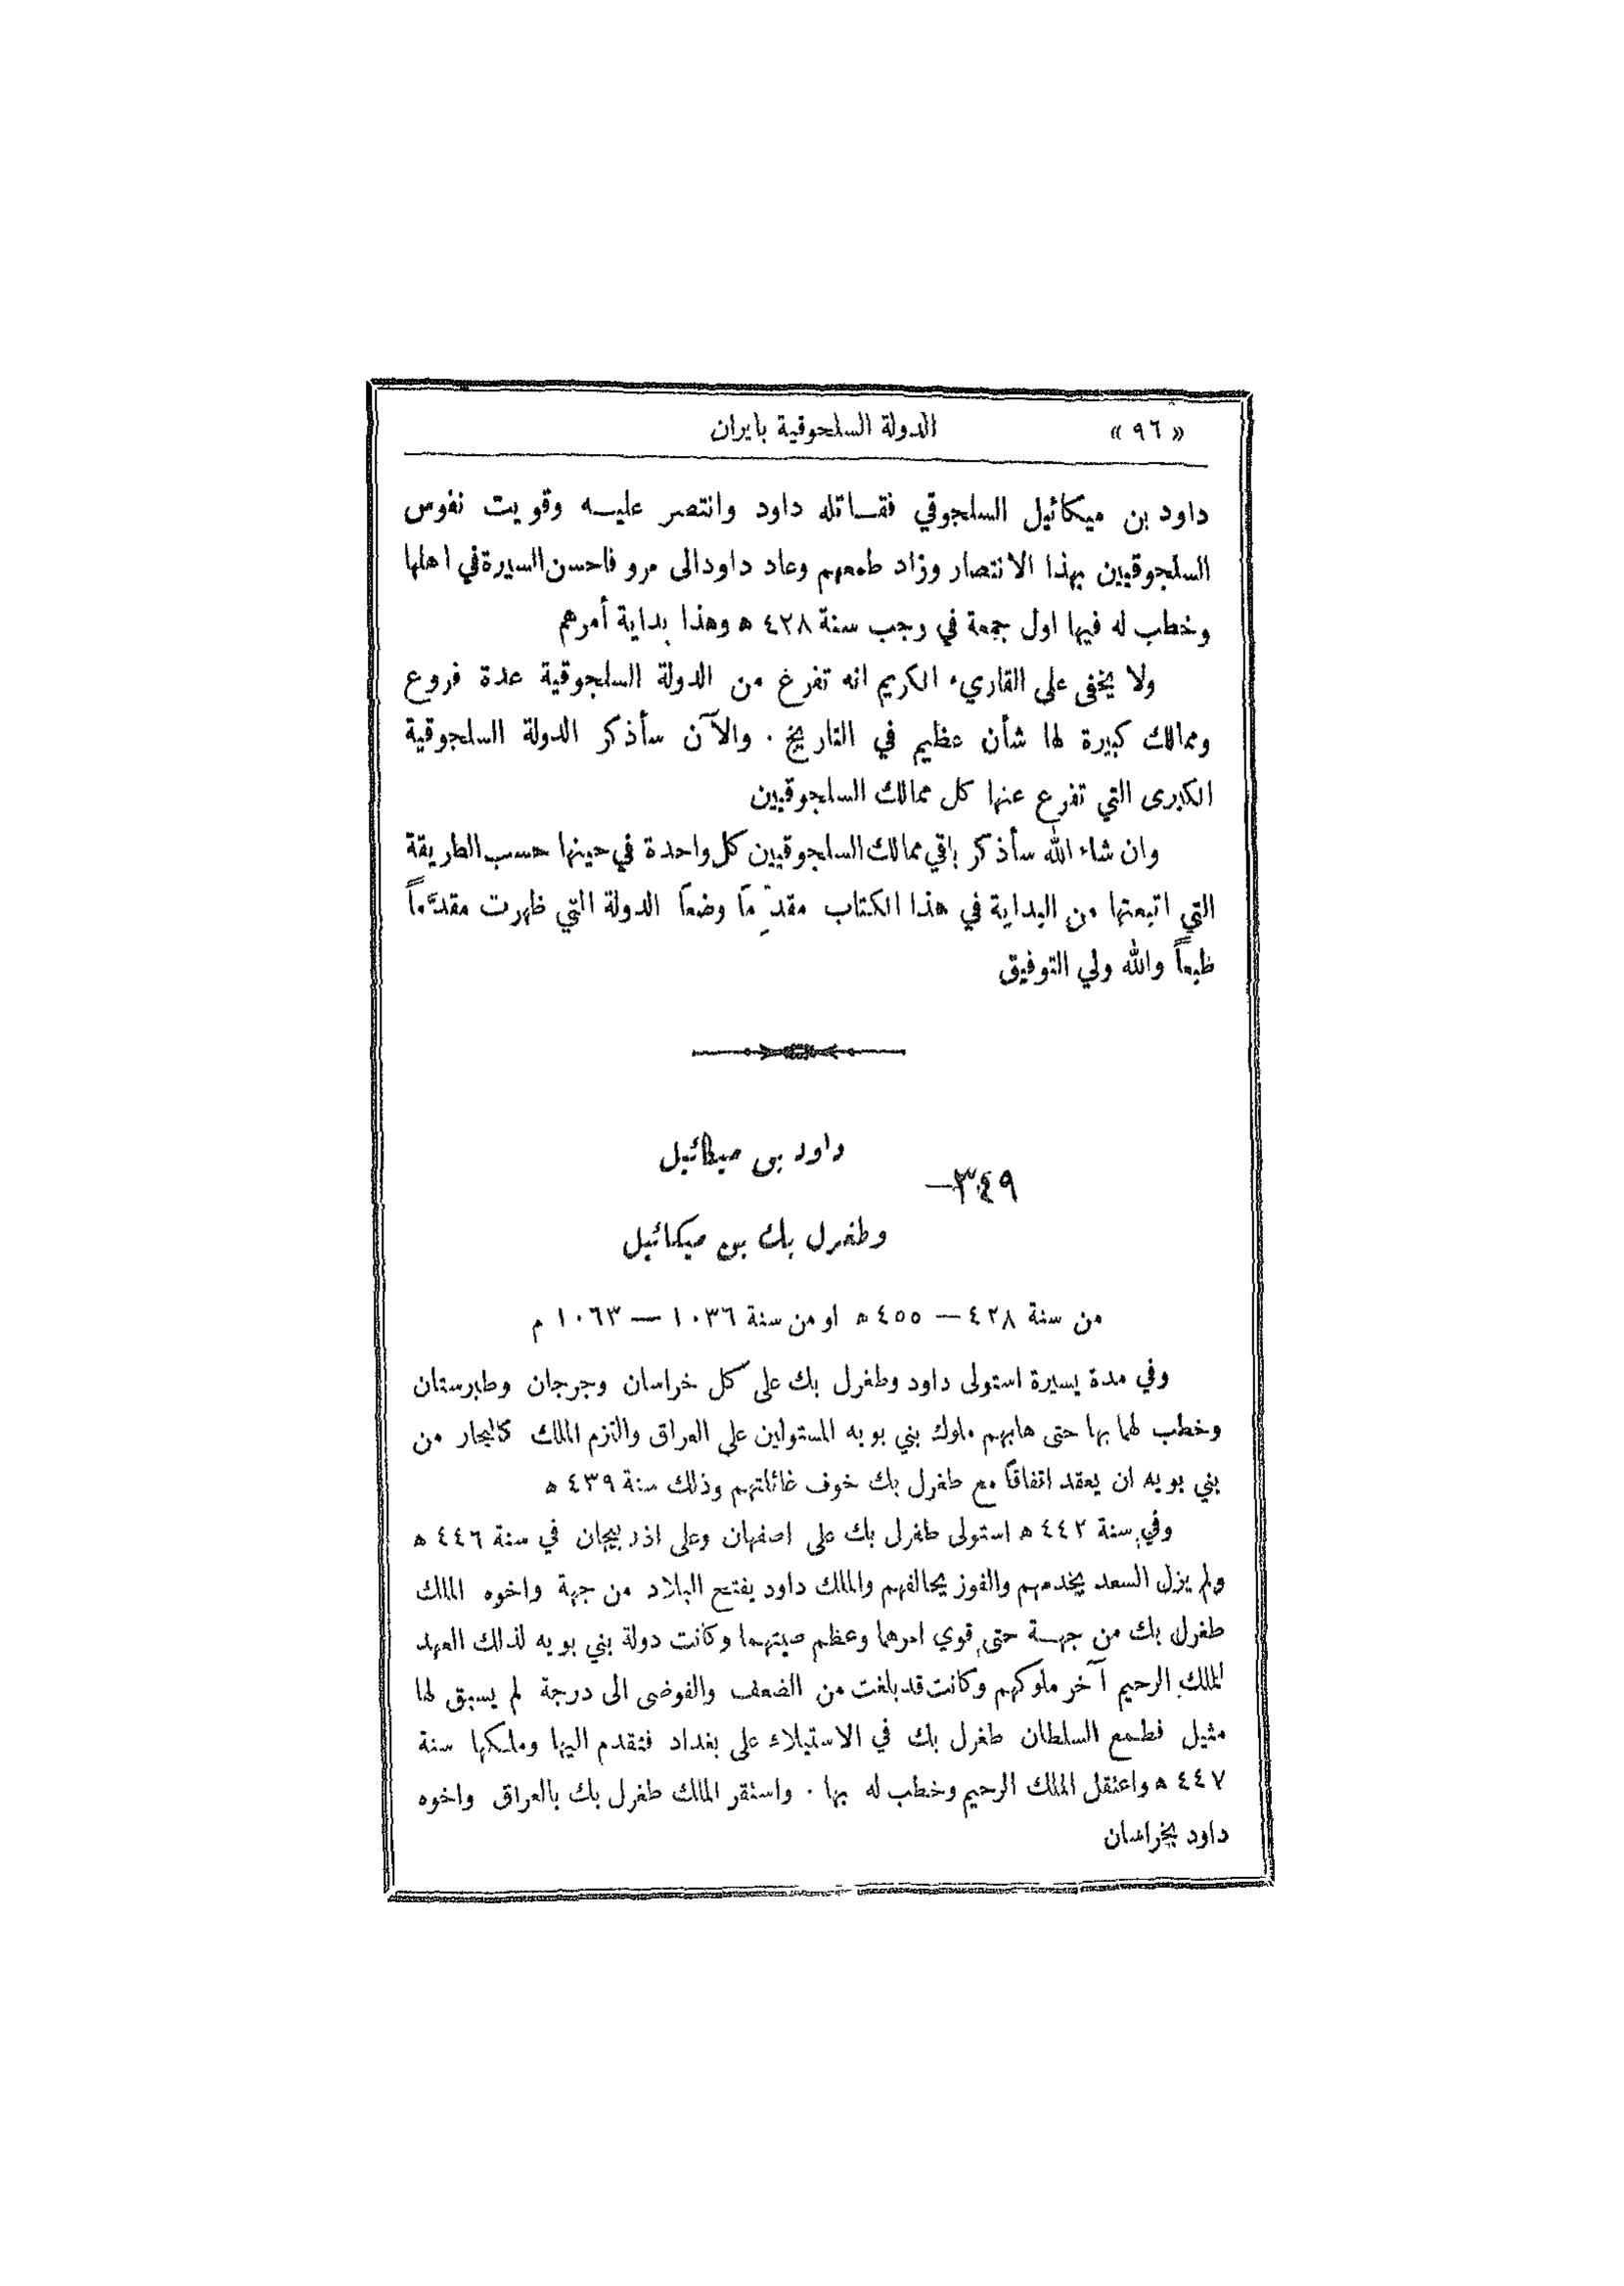 « ٩٦ » الدولة السلجوقية بايران
داود بن ميكائيل السلجوقي فقاتله داود وانتصر عليه وقويت نفوس
السلجوقيين بهذا الانتصار وزاد طمعهم وعاد داود الى مرو فاحسن السيرة في اهلها
وخطب له فيها اول جمعة في رجب سنة ٤٢٨ ه وهذا بداية أمرهم
ولا يخفى على القاريء الكريم انه تفرغ من الدولة السلجوقية عدة فروع
وممالك كبيرة لها شأن عظيم في التاريخ . والآن سأذكر الدولة السلجوقية
الكبرى التي تفرع عنها كل ممالك السلجوقيين
وان شاء الله سأذكر باقي ممالك السلجوقيين كل واحدة في حينها حسب الطريقة
التي اتبعتها من البداية في هذا الكتاب مقدِّماً وضعاً الدولة التي ظهرت مقدَّماً
طبعاً والله ولي التوفيق
داود بن ميكائيل
٣٤٩—
وطغرل بك بن ميكائيل
من سنة ٤٢٨ — ٤٥٥ ه او من سنة ١٠٣٦ — ١٠٦٣ م
وفي مدة يسيرة استولى داود وطغرل بك على كل خراسان وجرجان وطبرستان
وخطب لهما بها حتى هابهم ملوك بني بويه المستولين على العراق والتزم الملك كاليجار من
بني بويه ان يعقد اتفاقاً مع طغرل بك خوف غائلتهم وذلك سنة ٤٣٩ ه
وفي سنة ٤٤٢ ه استولى طغرل بك على اصفهان وعلى اذربيجان في سنة ٤٤٦ ه
ولم يزل السعد يخدمهم والفوز يحالفهم والملك داود يفتح البلاد من جهة واخوه الملك
طغرل بك من جهة حتى قوي امرهما وعظم صيتهما وكانت دولة بني بويه لذلك العهد
للملك الرحيم آخر ملوكهم وكانت قد بلغت من الضعف والفوضى الى درجة لم يسبق لها
مثيل فطمع السلطان طغرل بك في الاستيلاء على بغداد فتقدم اليها وملكها سنة
٤٤٧ ه واعتقل الملك الرحيم وخطب له بها . واستقر الملك طغرل بك بالعراق واخوه
داود بخراسان